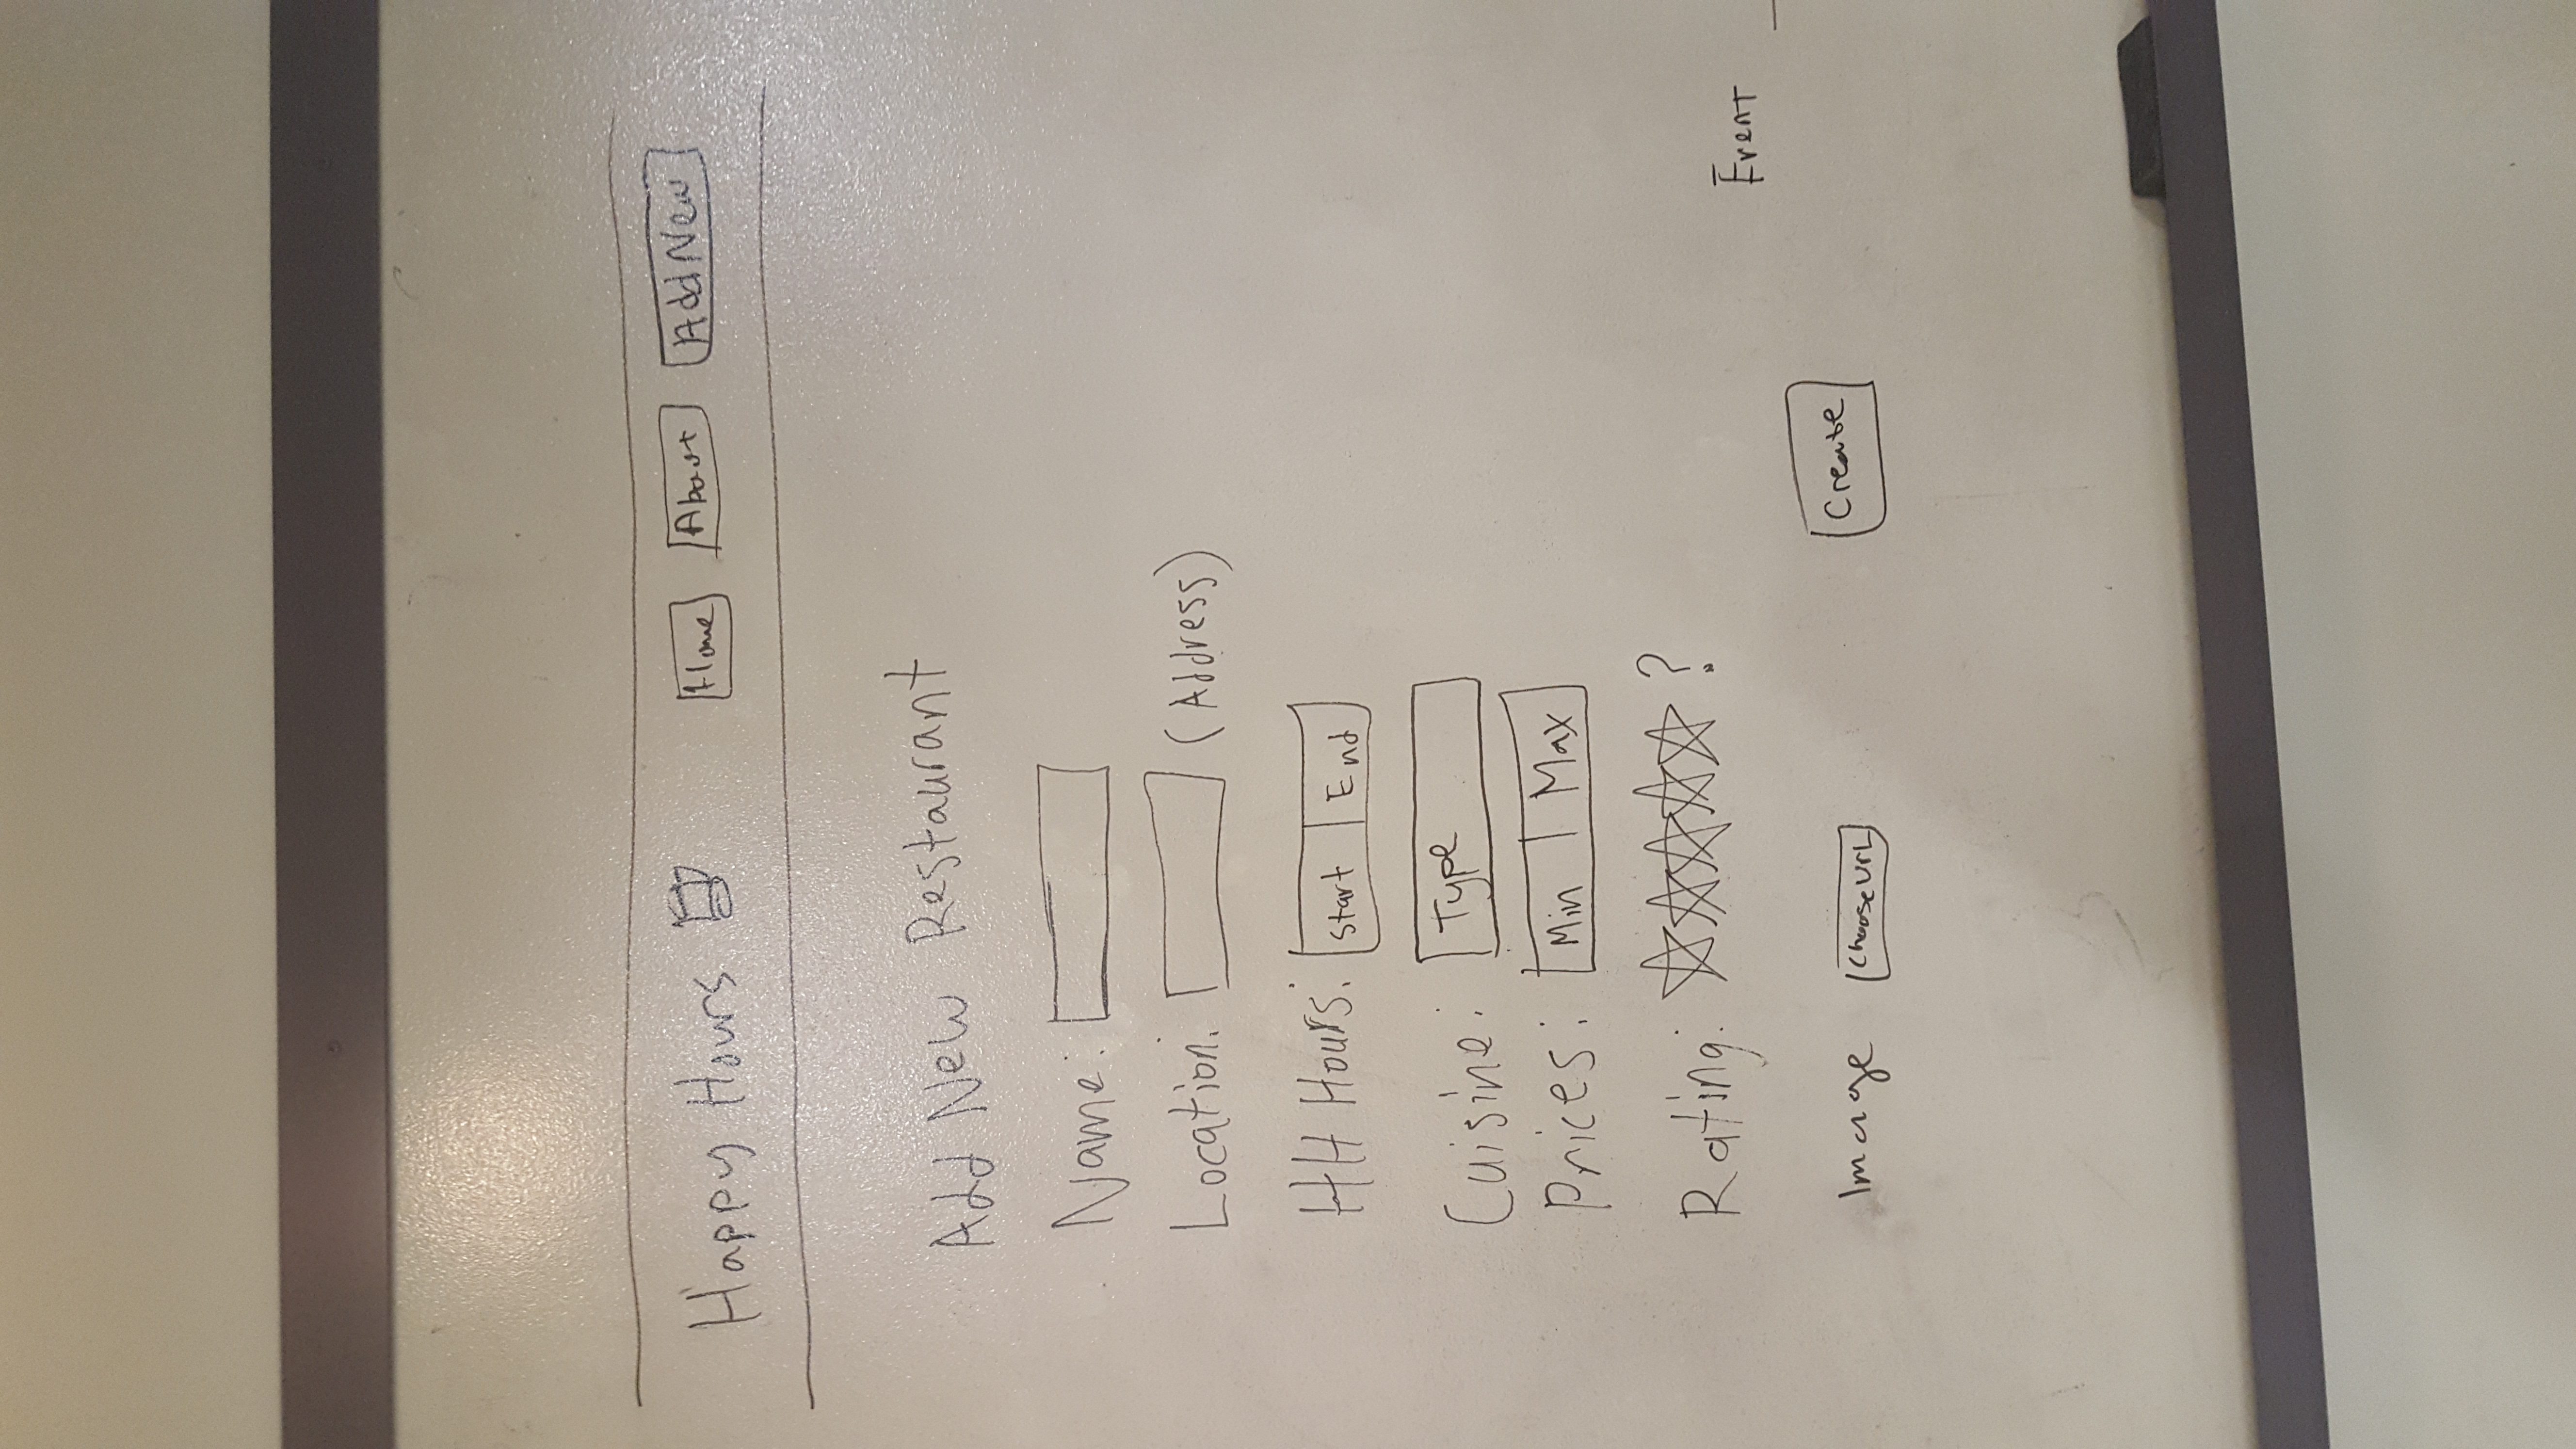 Happy Hours Home About Add New
Add New Restaurant
Name:
Location: (Address)
HH Hours: Start End
Cuisine: Type
Prices: Min Max
Rating: ?
Event
Image Choose URL Create